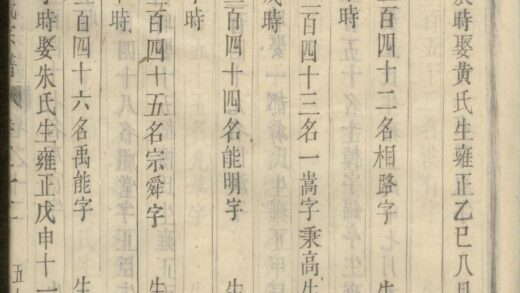 時娶黃氏生雍正乙巳八月
百四十二名相路字 生
時
百四十三名一嵩字秉高生
時
百四十四名能明字 生
時
百四十五名宗舜字 生
時
百四十六名禹能字 生
時娶朱氏生雍正戊申十一
宗譜 五